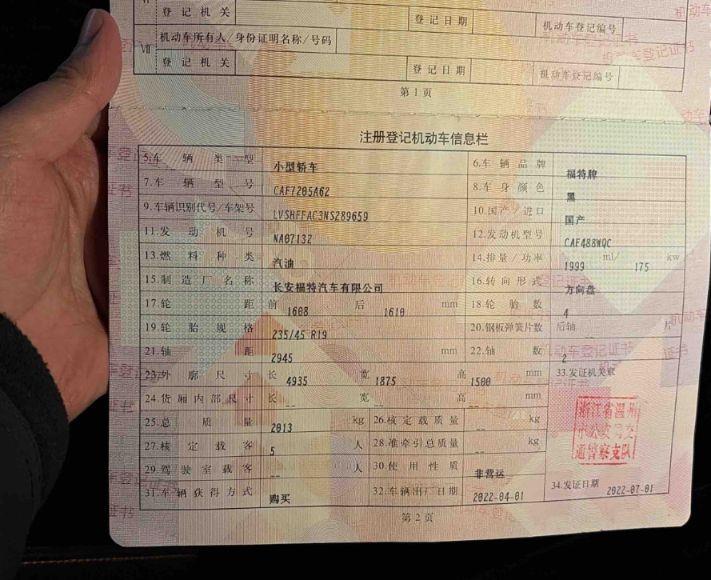 登记机关 登记日期 机动车登记编号
Ⅶ 机动车所有人/身份证明名称/号码
登记机关 登记日期 机动车登记编号
第1页
注册登记机动车信息栏
5.车辆类型 小型轿车 6.车辆品牌 福特牌
7.车辆型号 CAF7205A62 8.车身颜色 黑
9.车辆识别代号/车架号 LVSHFFAC3NS289659 10.国产/进口 国产
11.发动机号 NA07132 12.发动机型号 CAF488WQC
13.燃料种类 汽油 14.排量/功率 1999 ml/ 175 kw
15.制造厂名称 长安福特汽车有限公司 16.转向形式 方向盘
17.轮距 前 1608 后 1610 mm 18.轮胎数 4
19.轮胎规格 235/45 R19 20.钢板弹簧片数 后轴 片
21.轴距 2945 mm 22.轴数 2
23.外廓尺寸 长 4935 宽 1875 高 1500 mm 33.发证机关章
24.货厢内部尺寸 长 -- 宽 -- 高 -- mm
25.总质量 2013 kg 26.核定载质量 -- kg
27.核定载客 5 人 28.准牵引总质量 -- kg
浙江省温州
市公安局交
通警察支队
29.驾驶室载客 -- 人 30.使用性质 非营运
31.车辆获得方式 购买 32.车辆出厂日期 2022-04-01 34.发证日期 2022-07-01
第2页